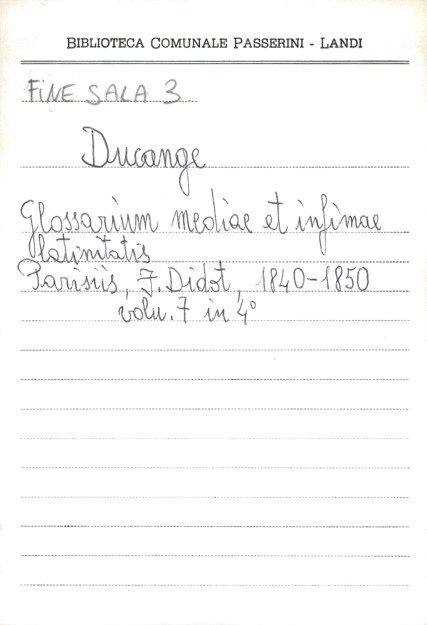 BIBLIOTECA COMUNALE PASSERINI - LANDI
FINE SALA 3
Ducange
Glossarium mediae et infimae
latinitatis
Parisiis, F. Didot, 1840-1850
volu. 7 in 4°